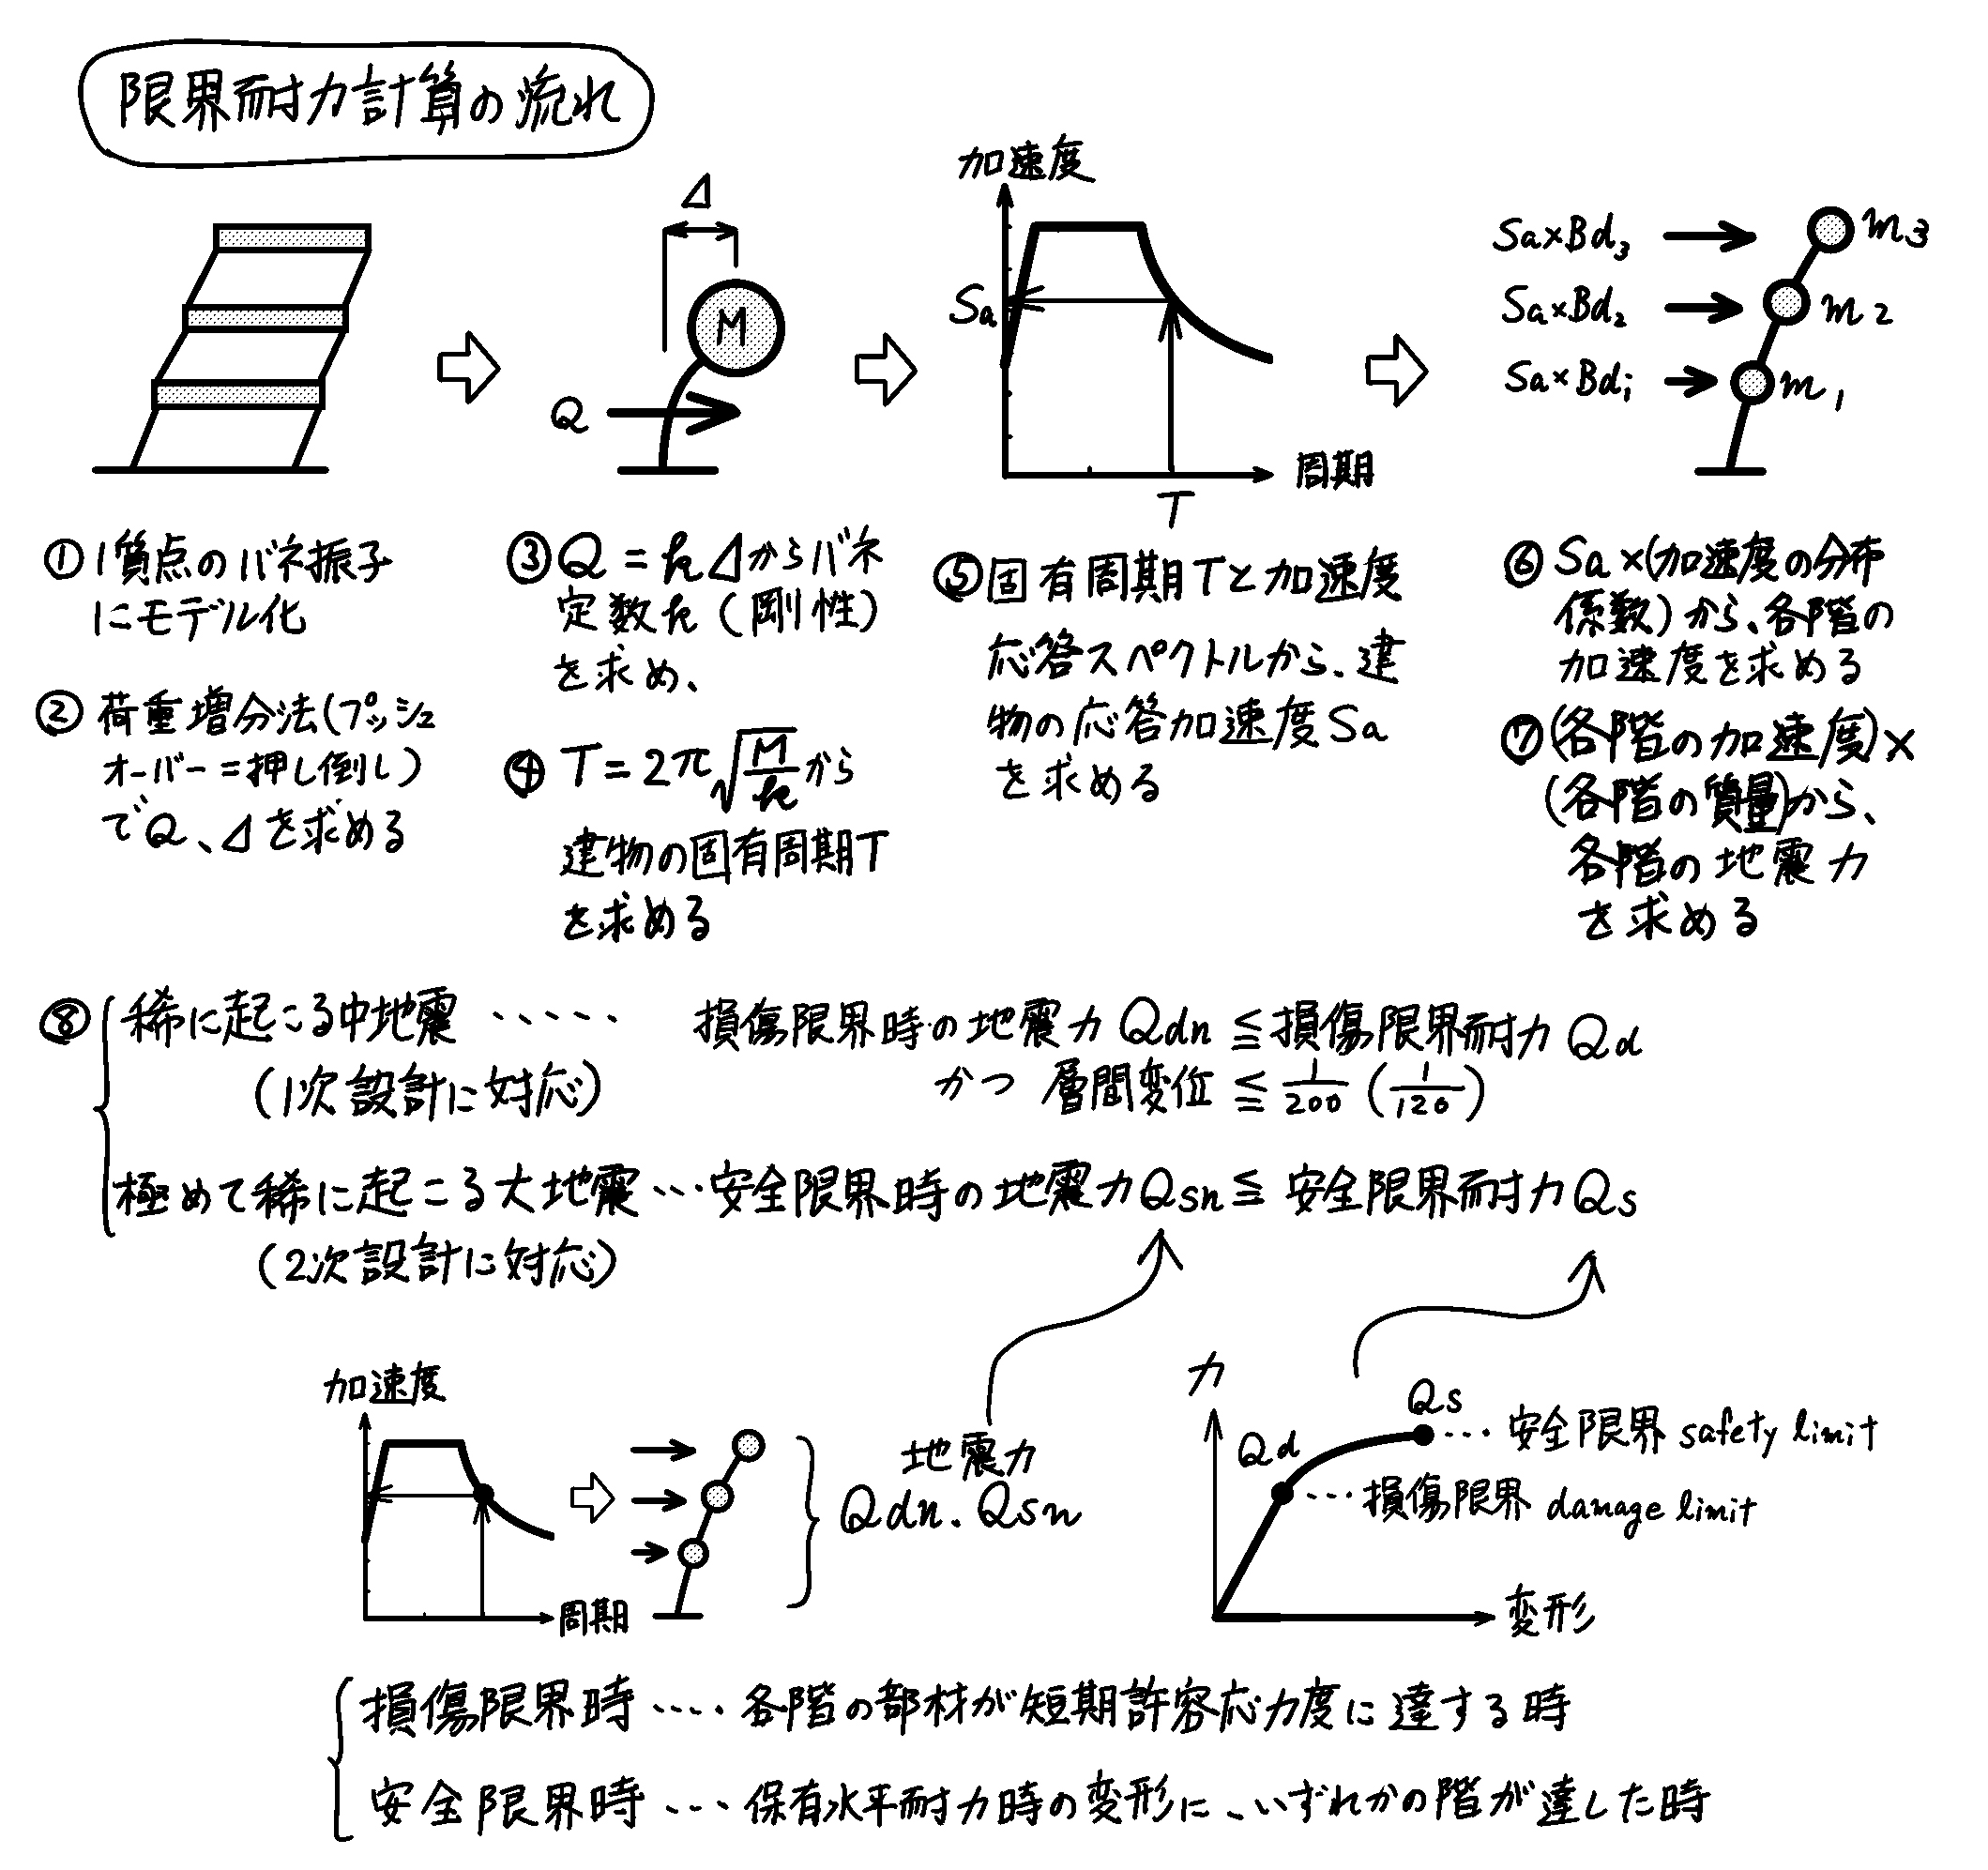 限界耐力計算の流れ
Δ
M
Q
加速度
Sa
周期
T
Sa×Bd3
m3
Sa×Bd2
m2
Sa×Bdi
m1
①1質点のバネ振子
にモデル化
②荷重増分法(プッシュ
オーバー=押し倒し)
でQ、Δを求める
③Q=kΔからバネ
定数k(剛性)
を求め、
④T=2π√M/kから
建物の固有周期T
を求める
⑤固有周期Tと加速度
応答スペクトルから、建
物の応答加速度Sa
を求める
⑥Sa×(加速度の分布
係数)から、各階の
加速度を求める
⑦(各階の加速度)×
(各階の質量)から、
各階の地震力
を求める
⑧稀に起こる中地震‥‥‥損傷限界時の地震力Qdn≦損傷限界耐力Qd
(1次設計に対応) かつ 層間変位≦1/200(1/120)
極めて稀に起こる大地震‥‥安全限界時の地震力Qsn≦安全限界耐力Qs
(2次設計に対応)
加速度
周期
地震力
Qdn.Qsn
力
Qs
‥‥安全限界 safety limit
Qd
‥‥損傷限界 damage limit
変形
損傷限界時‥‥各階の部材が短期許容応力度に達する時
安全限界時‥‥保有水平耐力時の変形に、いずれかの階が達した時